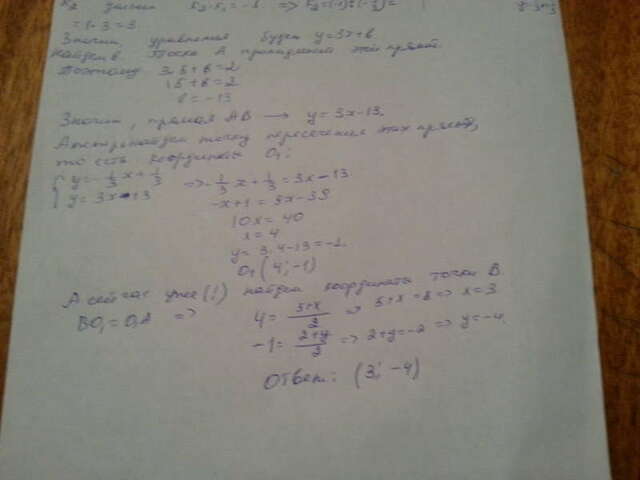 K₂ K₂·K₁=-1. => K₂=(-1):(-1/3)=
=1·3=3
Значит, уравнение будет y=3x+b
Найдем b. Точка А принадлежит этой прямой.
Поэтому 3·5+b=2
15+b=2
b=-13
Значит, прямая AB → y=3x-13.
найдем точку пересечения этих прямых,
то есть координаты O₁:
{ y=-1/3x+1/3 => -1/3x+1/3=3x-13
y=3x-13 -x+1=9x-39
10x=40
x=4
y=3·4-13=-1.
O₁(4;-1)
А сейчас уже (!) найдем координаты точки B.
BO₁=O₁A => 4=(5+x)/2 => 5+x=8 => x=3
-1=(2+y)/2 => 2+y=-2 => y=-4.
Ответ: (3; -4)